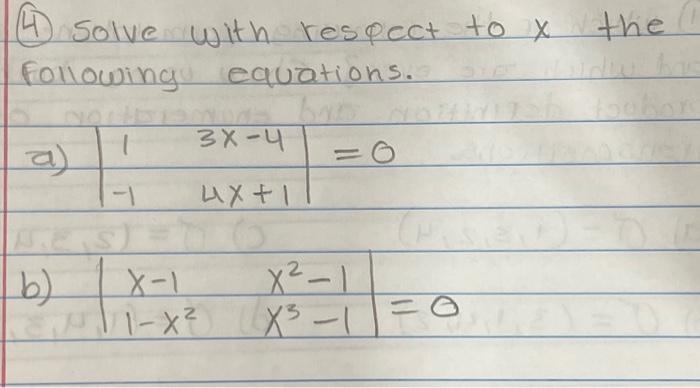 ④ Solve with respect to x the
following equations.
a) | 1 3x-4 | = 0
| -1 4x+1 |
b) | x-1 x²-1 | = 0
| 1-x² x³-1 |